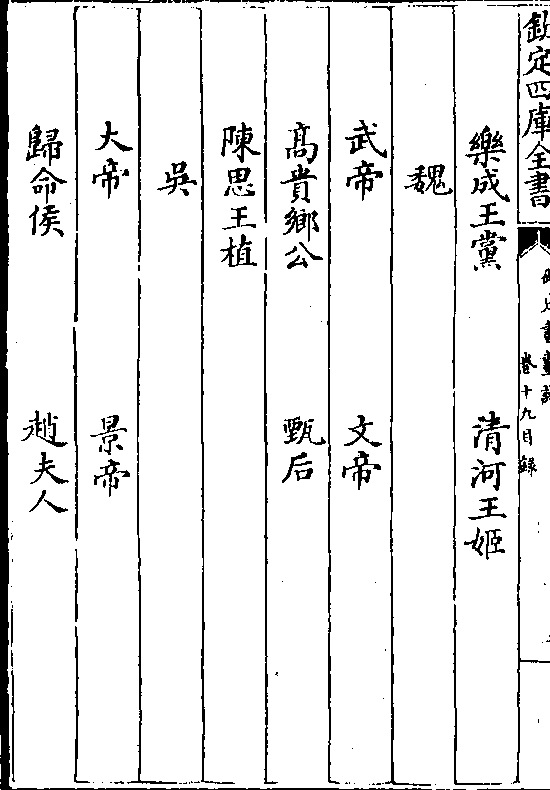 欽定四庫全書
卷十九目録
樂成王黨　清河王姬
魏
武帝　文帝
高貴鄉公　甄后
陳思王植
吳
大帝　景帝
歸命侯　趙夫人